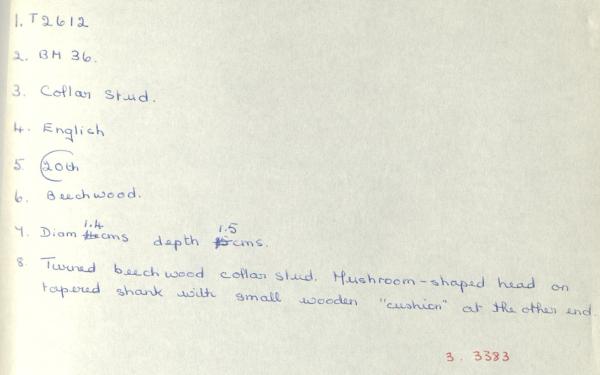 1. T2612
2. BM 36.
3. Collar Stud.
4. English
5. 20th
6. Beechwood.
7. Diam 1.4 cms depth 1.5 cms.
8. Turned beechwood collar stud. Mushroom-shaped head on
tapered shank with small wooden "cushion" at the other end.
3. 3383